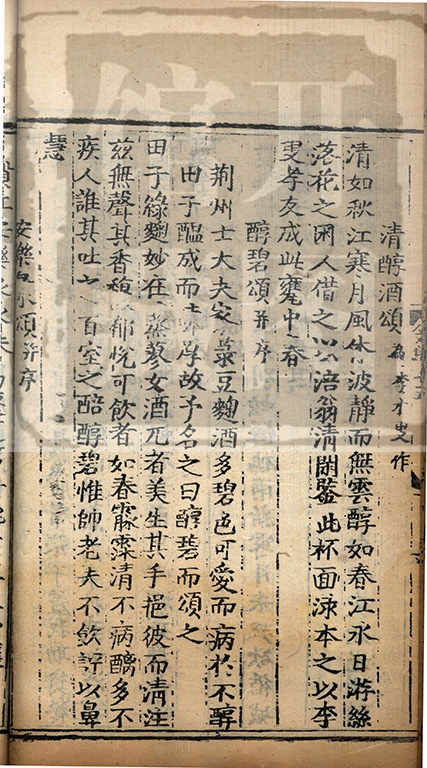 清醇酒頌為李才叟作
清如秋江寒月風休波靜而無雲醇如春江永日游絲
落花之困人借之以涪翁清閟鑒此杯面淥本之以李
叟孝友成此甕中春
醇碧頌并序
荊州士大夫家菉豆麴酒多碧色可愛而病於不醇
田子醞成而厚故予名之曰醇碧而頌之
田子綠麴妙在蒸蓼女酒兀者美生其手挹彼而清注
茲無聲其香郁悅可飲者如春霧霂清不病醨多不
疾人誰其吐之百室之酷醇碧惟帥老夫不飲評以鼻
慧
安樂泉頌并序